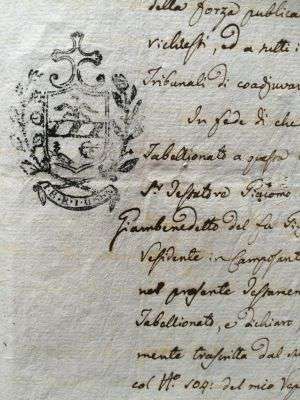 della forza pubblica
richiesti, ed a tutti i
Tribunali di coadjuvar
In fede di che
Tabellionato a questa
Sr. Testatore Giacomo
Giambenedetto del fu
Residente in Camposant
nel presente Testamen
Tabellionato, e dichiaro
mente trascritta dal
col N.o 509: del mio Rep